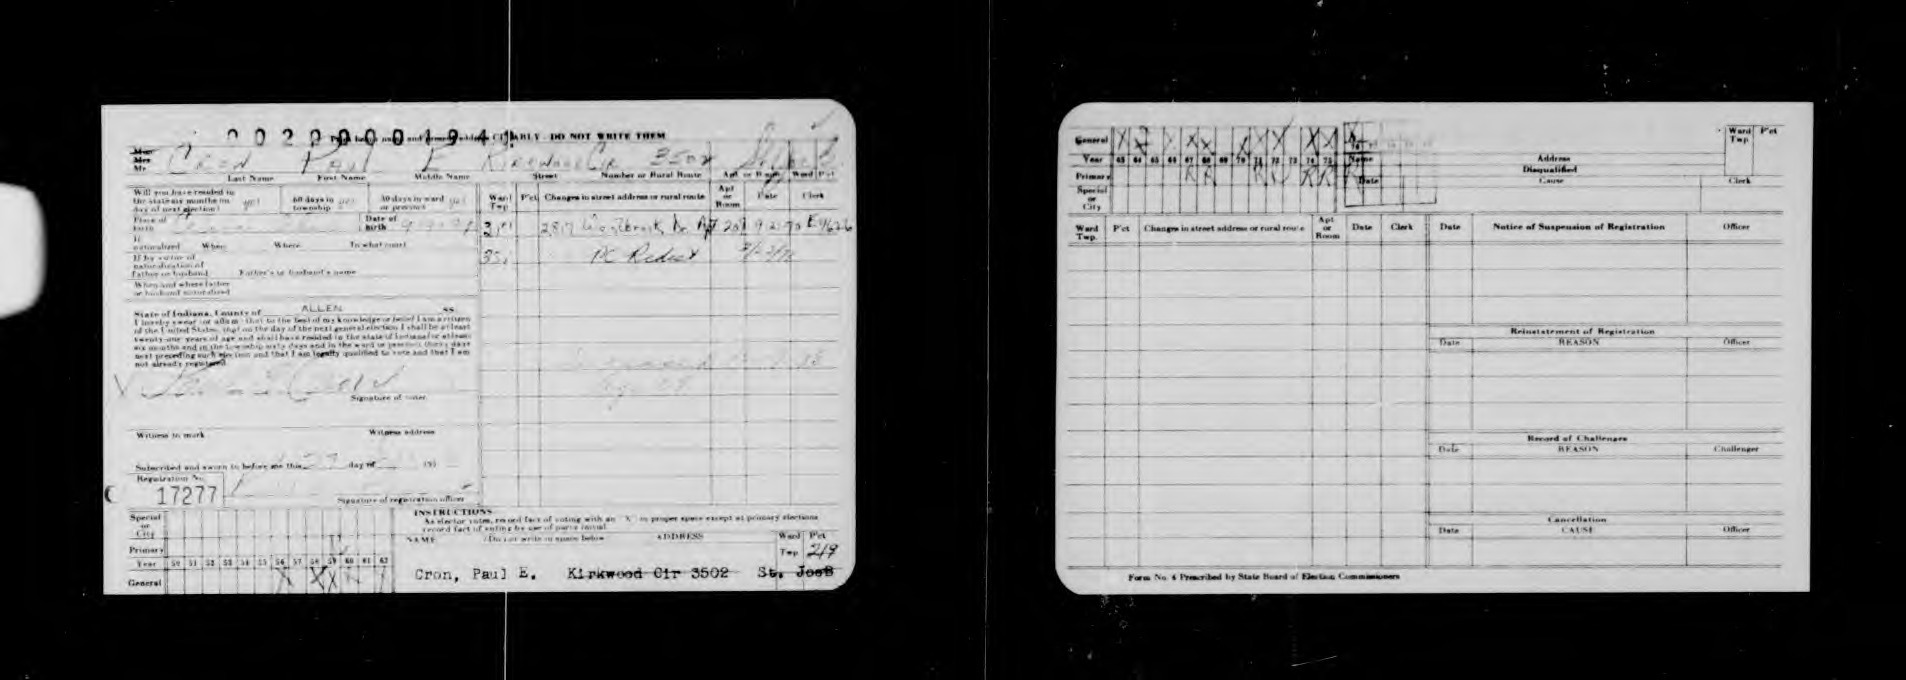 0020000194
CLEARLY - DO NOT WRITE THEM
Mrs
Mr
CRON PAUL E KIRKWOOD CIR 3502 St. Joe 8
Last Name First Name Middle Name Street Number or Rural Route Apt or Room Ward P'ct
Will you have resided in the state six months on day of next election? yes
60 days in township yes
30 days in ward or precinct yes
Place of birth
Date of birth
If naturalized When Where In what court
If by virtue of naturalization of father or husband Father's or husband's name
When and where father or husband naturalized
State of Indiana, County of ALLEN SS.
I hereby swear (or affirm) that to the best of my knowledge or belief I am a citizen
of the United States, that on the day of the next general election I shall be at least
twenty-one years of age and shall have resided in the state of Indiana for at least
six months and in the township sixty days and in the ward or precinct thirty days
next preceding such election and that I am legally qualified to vote and that I am
not already registered
Signature of voter
Witness to mark Witness address
Subscribed and sworn to before me this 27 day of 195
Registration No.
17277
Signature of registration officer
Ward Twp P'ct Changes in street address or rural route Apt or Room Date Clerk
2817 Westbrook Dr. 9-21-70
PC Redist
INSTRUCTIONS
As elector votes, record fact of voting with an "X" in proper space except at primary elections
record fact of voting by use of party initial
NAME (Do not write in space below) ADDRESS Ward Twp P'ct
219
Cron, Paul E. Kirkwood Cir 3502 St. Joe8
Special or City
Primary
Year 50 51 52 53 54 55 56 57 58 59 60 61 62
General X X X
General X X X X X X X X
Year 63 64 65 66 67 68 69 70 71 72 73 74 75
Primary R R R R R R
Special or City
Name
Date
Address
Disqualified
Cause Clerk
Ward Twp P'ct
Ward Twp. P'ct Changes in street address or rural route Apt or Room Date Clerk
Date Notice of Suspension of Registration Officer
Reinstatement of Registration
Date REASON Officer
Record of Challenges
Date REASON Challenger
Cancellation
Date CAUSE Officer
Form No. 4 Prescribed by State Board of Election Commissioners